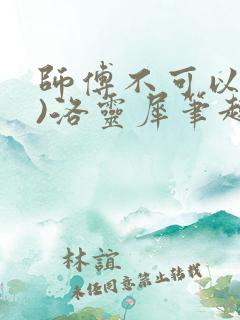 師傅不可以
)洛靈犀筆趣
林誼
未經同意禁止轉載